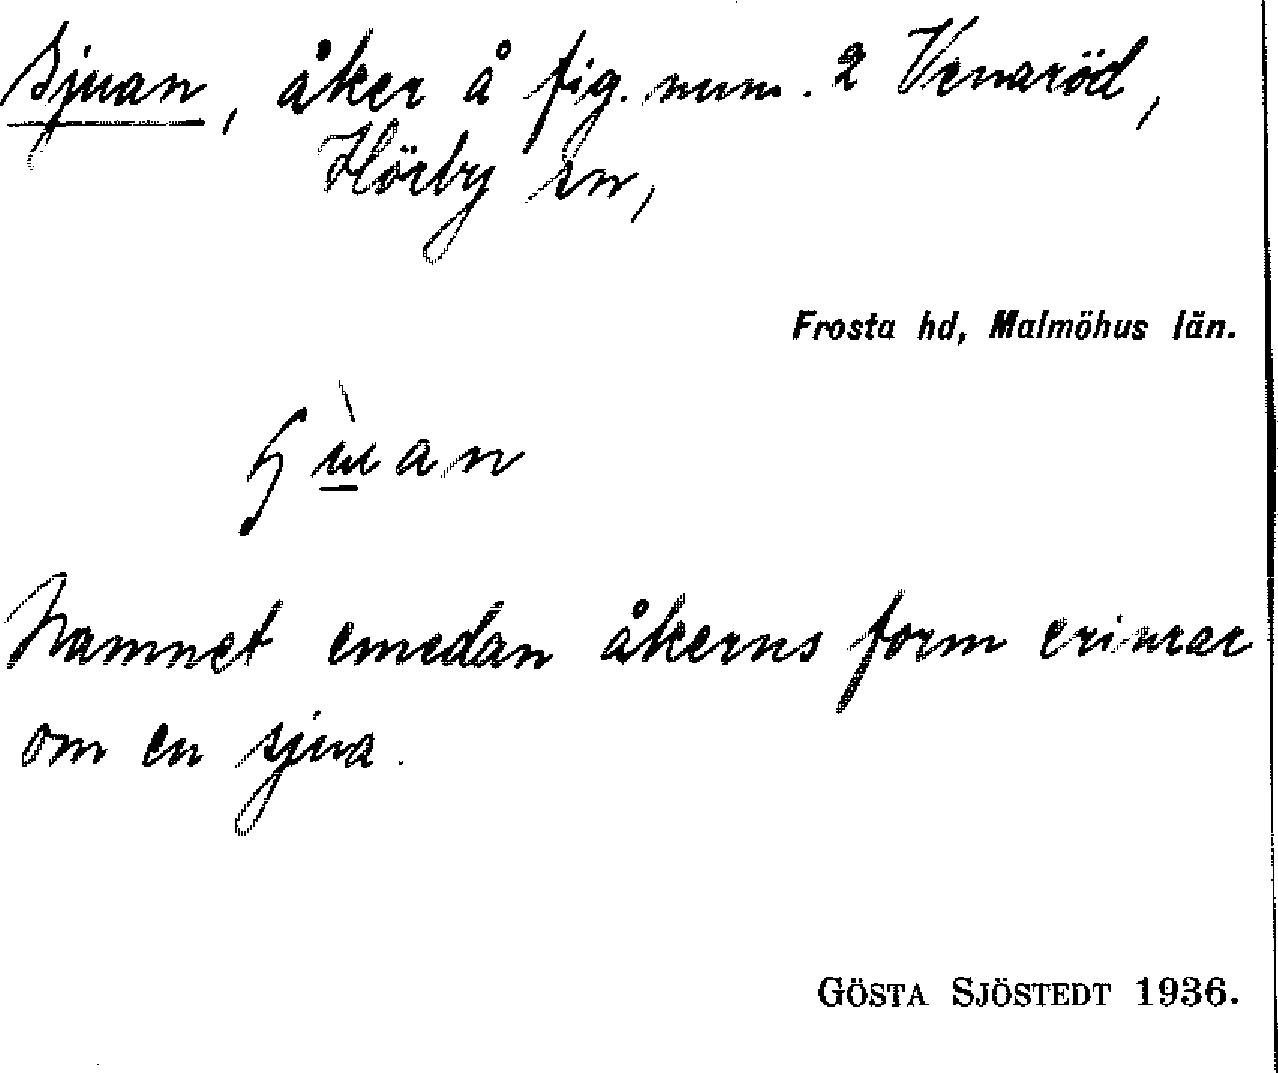 Sjuan, åker å fig. num. 2 Venaröd,
Hörby sn,
Frosta hd, Malmöhus län.
Namnet emedan åkerns form erinrar
om en sjua.
GÖSTA SJÖSTEDT 1936.